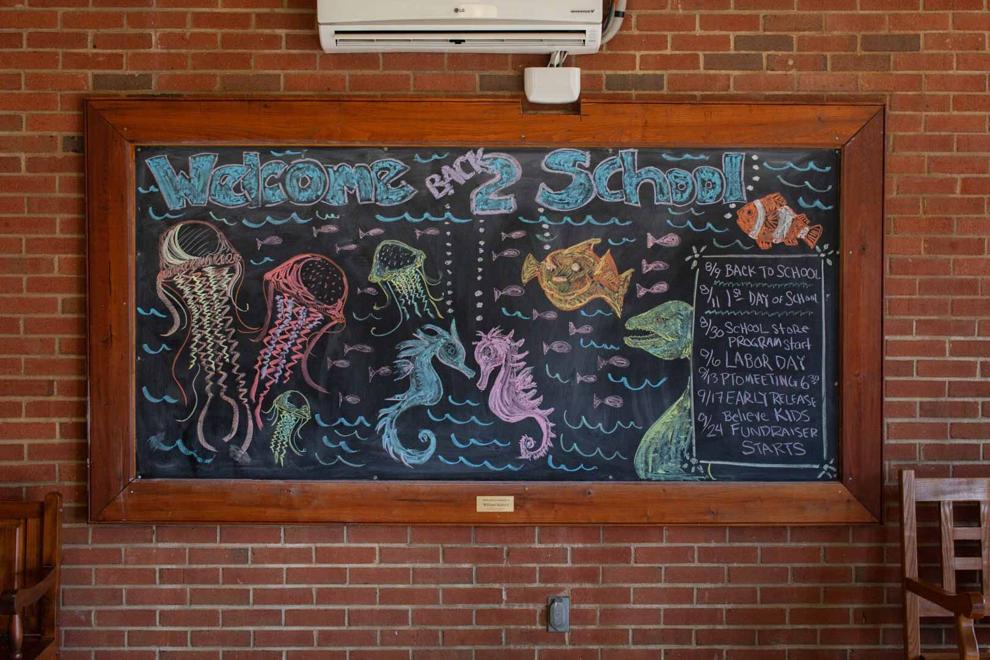 LG
Welcome BACK 2 School
8/9 BACK TO SCHOOL
8/11 1ST DAY OF SCHOOL
8/30 SCHOOL STORE
PROGRAM START
9/6 LABOR DAY
9/13 PTO MEETING 6:30
9/17 EARLY RELEASE
9/24 Believe KIDS
FUNDRAISER
STARTS